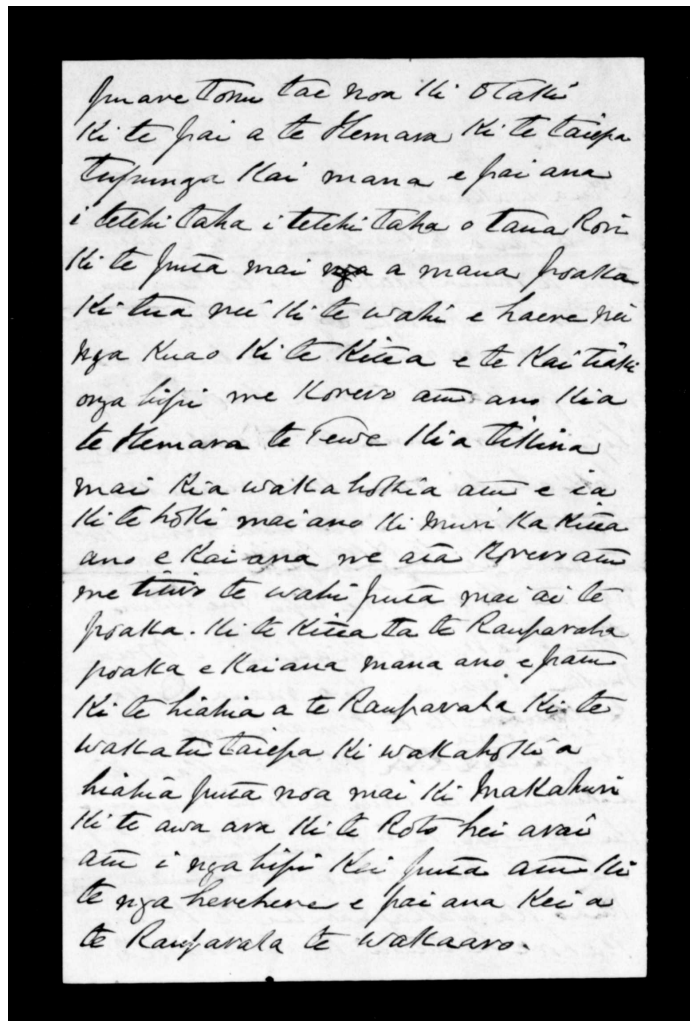 puare tonu tae noa ki Otaki
Ki te pai a te Hemara ki te taiepa
tupunga Kai mana e pai ana
i tetehi taha i tetehi taha o taua Rori
Ki te puta mai nga a mana poaka
Ki tua nei ki te wahi e haere nei
nga Kuao Ki te Kitea e te Kai tiaki
onga hipi me Korero atu ano Kia
te Hemara te Tewe Kia tikina
mai Kia wakahokia atu e ia
Ki te hoki mai ano Ki muri Ka Kitea
ano e Kai ana me ata Korero atu
me titiro te wahi puta mai ai te
poaka. Ki te Kitea ta te Rauparaha
poaka e Kai ana mana ano e patu
Ki te hiahia a te Rauparaha Ki te
wakatu taiepa Ki wakahoki a
hiahia puta noa mai Ki Makahuri
Ki te awa ara Ki te Roto hei arai
atu i nga hipi Kei puta atu Ki
te nga herehere e pai ana Kei a
te Rauparaha te wakaaro.